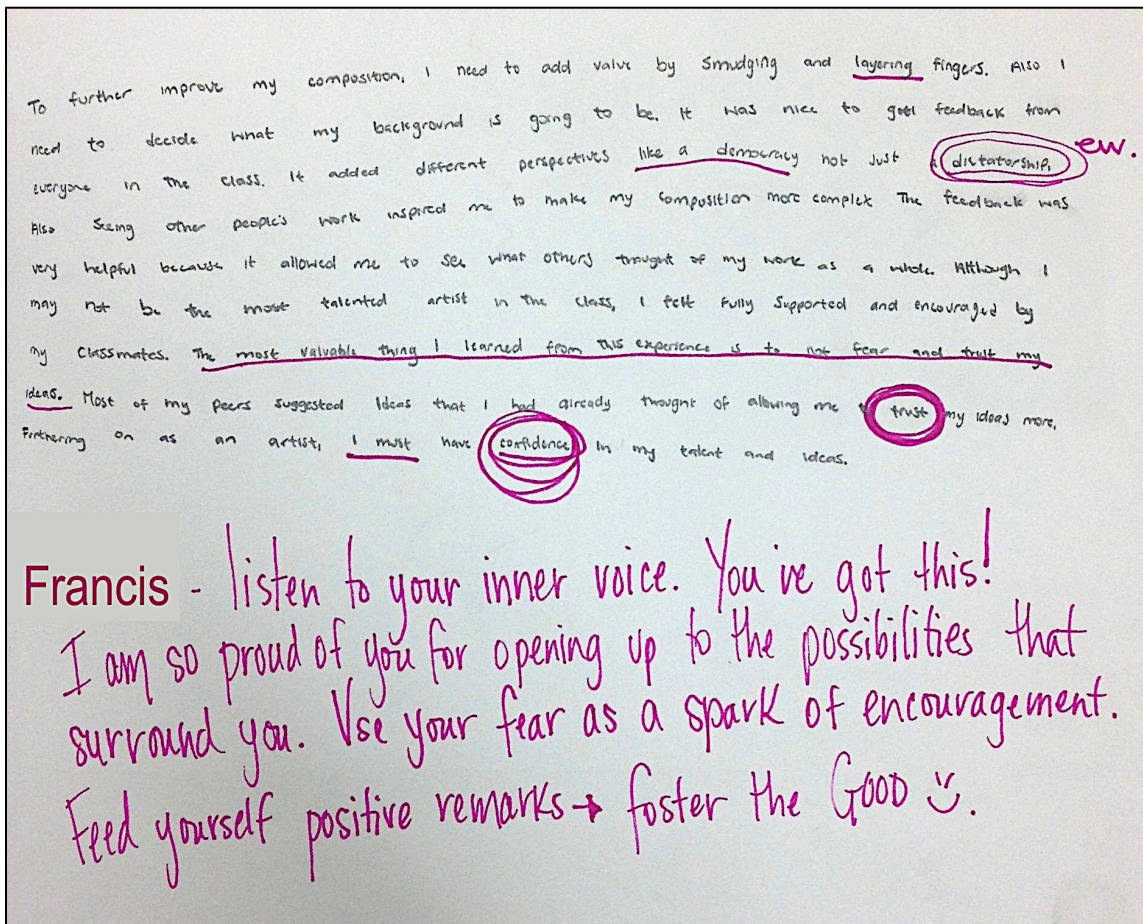 To further improve my composition, I need to add value by smudging and layering fingers. Also I
need to decide what my background is going to be. It was nice to get feedback from
everyone in the class. It added different perspectives like a democracy not just a dictatorship. ew.
Also seeing other people's work inspired me to make my composition more complex The feedback was
very helpful because it allowed me to see what others thought of my work as a whole. Although I
may not be the most talented artist in the class, I felt fully supported and encouraged by
my classmates. The most valuable thing I learned from this experience is to not fear and trust my
ideas. Most of my peers suggested ideas that I had already thought of allowing me trust my ideas more.
Furthering on as an artist, I must have confidence in my talent and ideas.
Francis - listen to your inner voice. You've got this!
I am so proud of you for opening up to the possibilities that
surround you. Use your fear as a spark of encouragement.
Feed yourself positive remarks → foster the GOOD